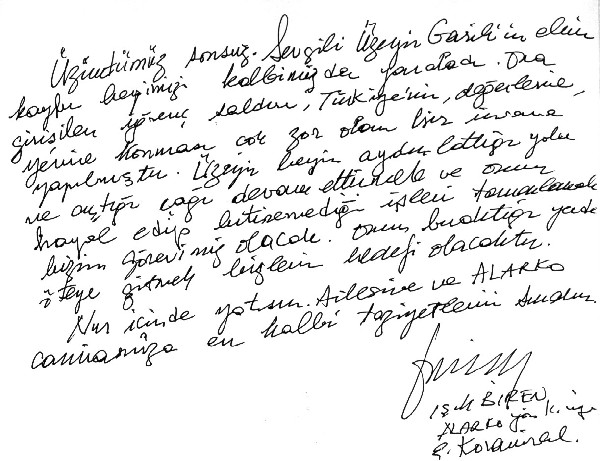 Üzüntümüz sonsuz. Sevgili Üzeyir Garih'in elim
kaybı hepimizi kalbimizden yaraladı. Ona
girişilen iğrenç saldırı, Türkiye'nin, değerlerine,
yerine konması çok zor olan bir insana
yapılmıştır. Üzeyir beyin aydınlattığı yolu
ve açtığı çağı devam ettirmek ve onun
hayal edip bitiremediği işleri tamamlamak
bizim görevimiz olacak. Onun bıraktığı yerden
öteye gitmek bizlerin hedefi olacaktır.
Nur içinde yatsın. Ailesine ve ALARKO
camiamıza en kalbi taziyetlerimi sunarım.
IŞIK BİREN
ALARKO yön. K. üyesi
E. Koramiral